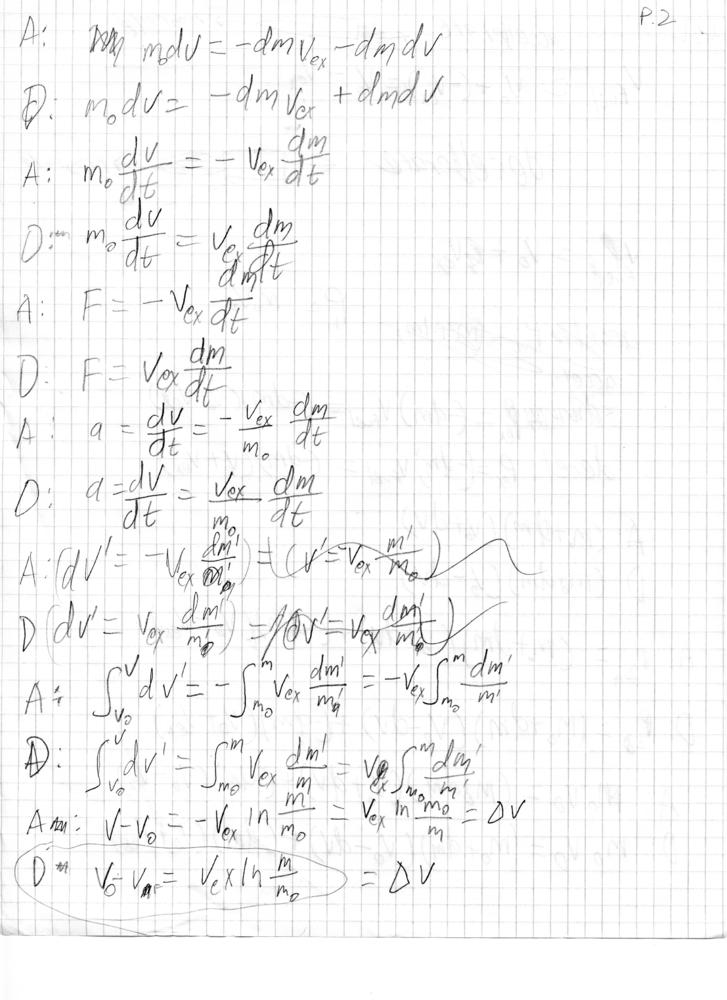 P.2
A: m₀dv = -dm v_ex - dm dv
D: m₀dv = -dm v_ex + dm dv
A: m₀ dv/dt = - v_ex dm/dt
D: m₀ dv/dt = v_ex dm/dt
A: F = - v_ex dm/dt
D: F = v_ex dm/dt
A: a = dv/dt = - v_ex/m₀ dm/dt
D: a = dv/dt = v_ex/m₀ dm/dt
A: (dv' = - v_ex dm'/m'₀) = (v' = v_ex m'/m₀)
D (dv' = v_ex dm'/m'₀) = (dv' = v_ex dm'/m₀)
A: ∫_{v₀}^{v} dv' = - ∫_{m₀}^{m} v_ex dm'/m'₀ = - v_ex ∫_{m₀}^{m} dm'/m'
D: ∫_{v₀}^{v} dv' = ∫_{m₀}^{m} v_ex dm'/m = v_ex ∫_{m₀}^{m} dm'/m'
A: v - v₀ = - v_ex ln m/m₀ = v_ex ln m₀/m = Δv
D v₀ - v = v_ex ln m/m₀ = Δv